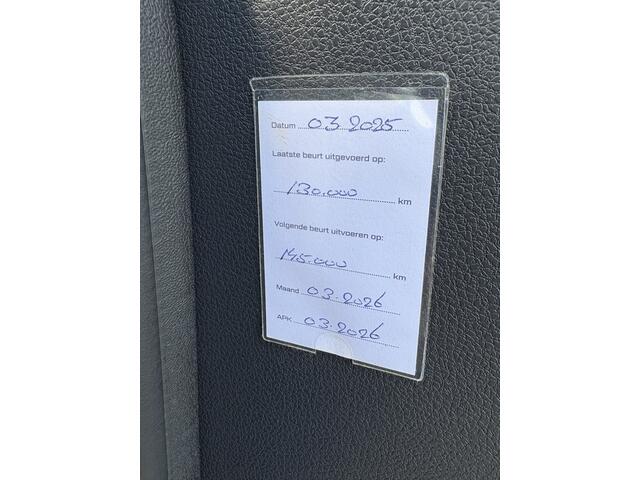 Datum 03 2025
Laatste beurt uitgevoerd op:
130.000 km
Volgende beurt uitvoeren op:
145.000 km
Maand 03.2026
APK 03.2026